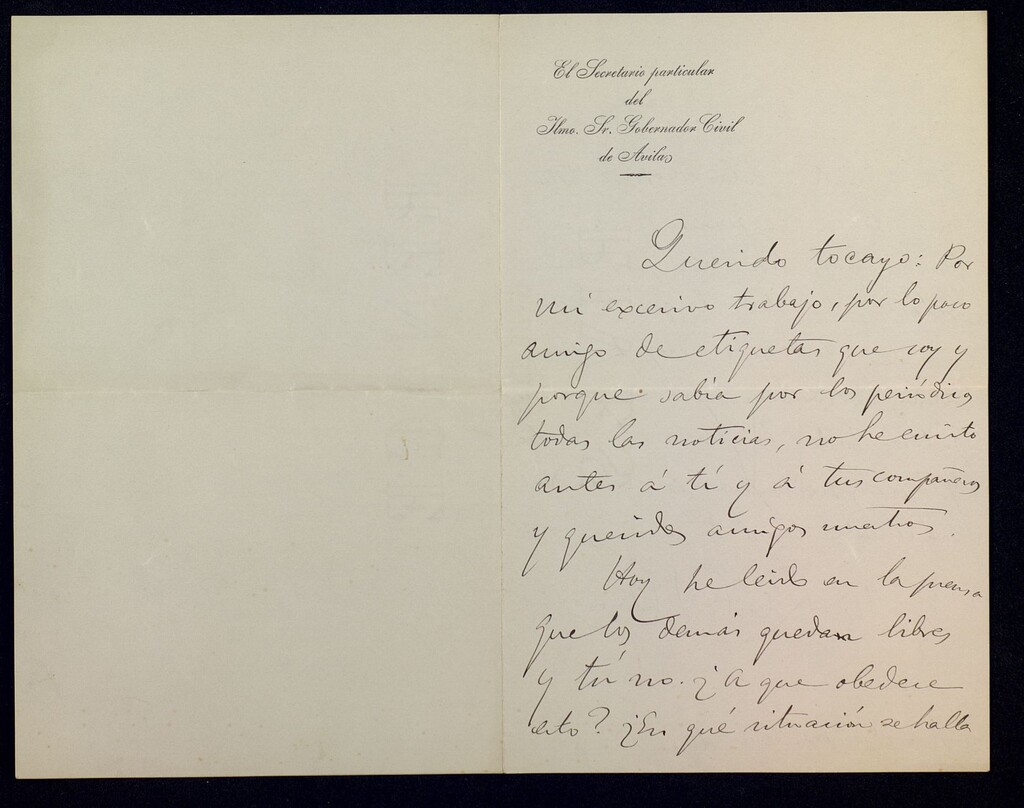 El Secretario particular
del
Ilmo. Sr. Gobernador Civil
de Avila
Querido tocayo: Por
mi excesivo trabajo, por lo poco
amigo de etiquetas que soy y
porque sabía por los periódicos
todas las noticias, no he escrito
antes á tí y á tus compañeros
y queridos amigos nuestros.
Hoy he leido en la prensa
que los demás quedan libres
y tú no. ¿A que obedece
esto? ¿En qué situación se halla